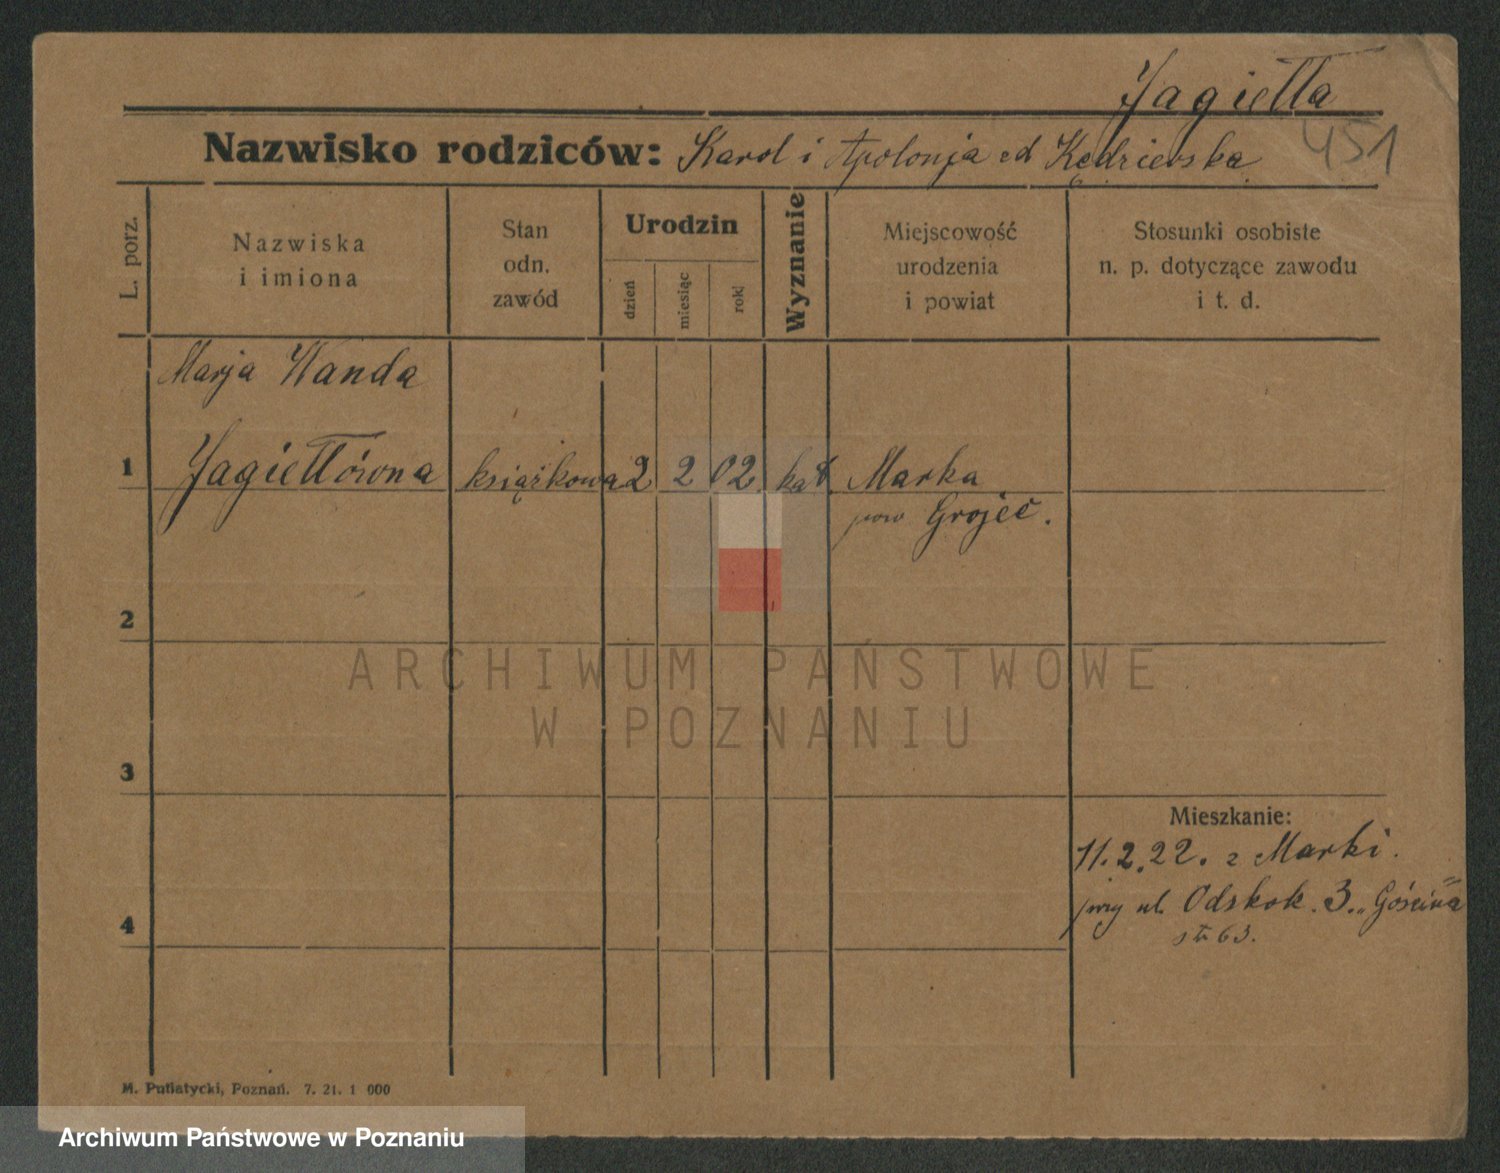 Jagiełła
Nazwisko rodziców: Karol i Apolonja zd Kędzierska
451
L. porz.
Nazwiska
i imiona
Stan
odn.
zawód
Urodzin
dzień
miesiąc
rok
Wyznanie
Miejscowość
urodzenia
i powiat
Stosunki osobiste
n. p. dotyczące zawodu
i t. d.
Marja Wanda
1 Jagiełłówna książkowa 2 2 02 kat Marka
pow Grojec.
2
3
4
Mieszkanie:
11.2.22. z Marki.
przy ul. Odskok. 3. „Gościna"
str 63.
M. Putiatycki, Poznań. 7. 21. 1 000
ARCHIWUM PAŃSTWOWE
W POZNANIU
Archiwum Państwowe w Poznaniu